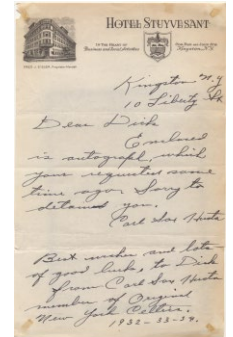 HOTEL STUYVESANT
Kingston N.Y
10 Liberty St
Dear Dick
Enclosed
is autograph, which
your requested some
time ago. Sorry to
detained you.
Carl Sox Husta
Best wishes and lots
of good luck, to Dick
from Carl Sox Husta
member of Original
New York Celtics.
1932-33-34.